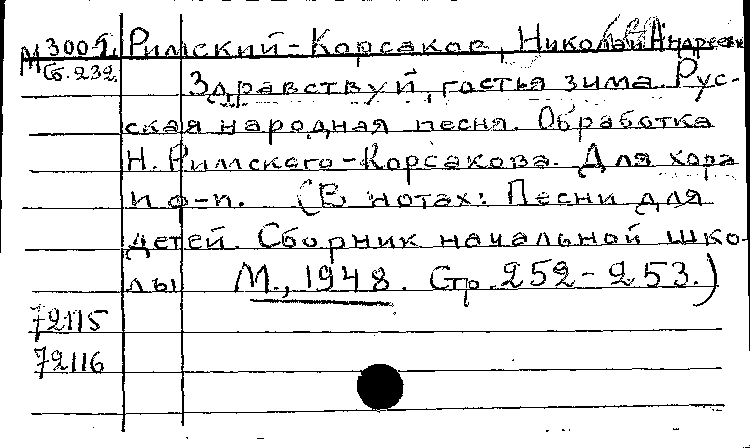 М 300-1 Римский-Корсаков, Николай Андреевич
Сб. 232 Здравствуй, гостья зима. Рус-
ская народная песня. Обработка
Н. Римского-Корсакова. Для хора
и ф-п. (В нотах: Песни для
детей. Сборник начальной шко-
лы М., 1948. Стр. 252-253.)
72115
72116